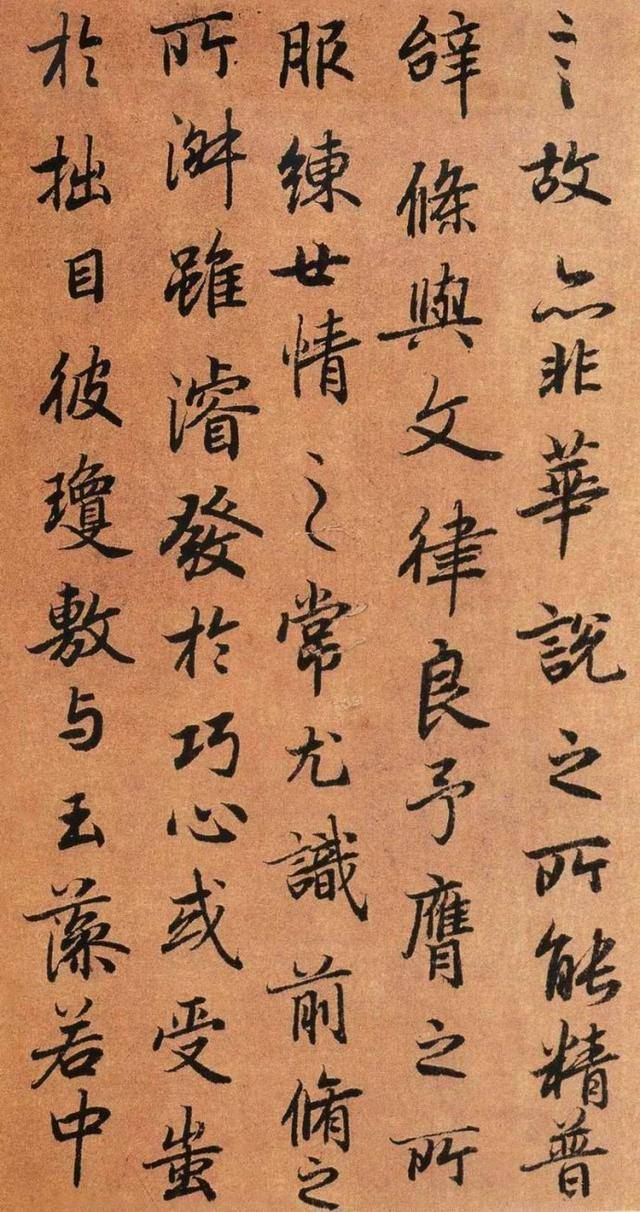 言之故亦非華說之所能精普
辭條與文律良予膺之所
服練世情之常尤識前脩之
所淑雖濬發於巧心或受蚩
於拙目彼瓊敷与玉藻若中